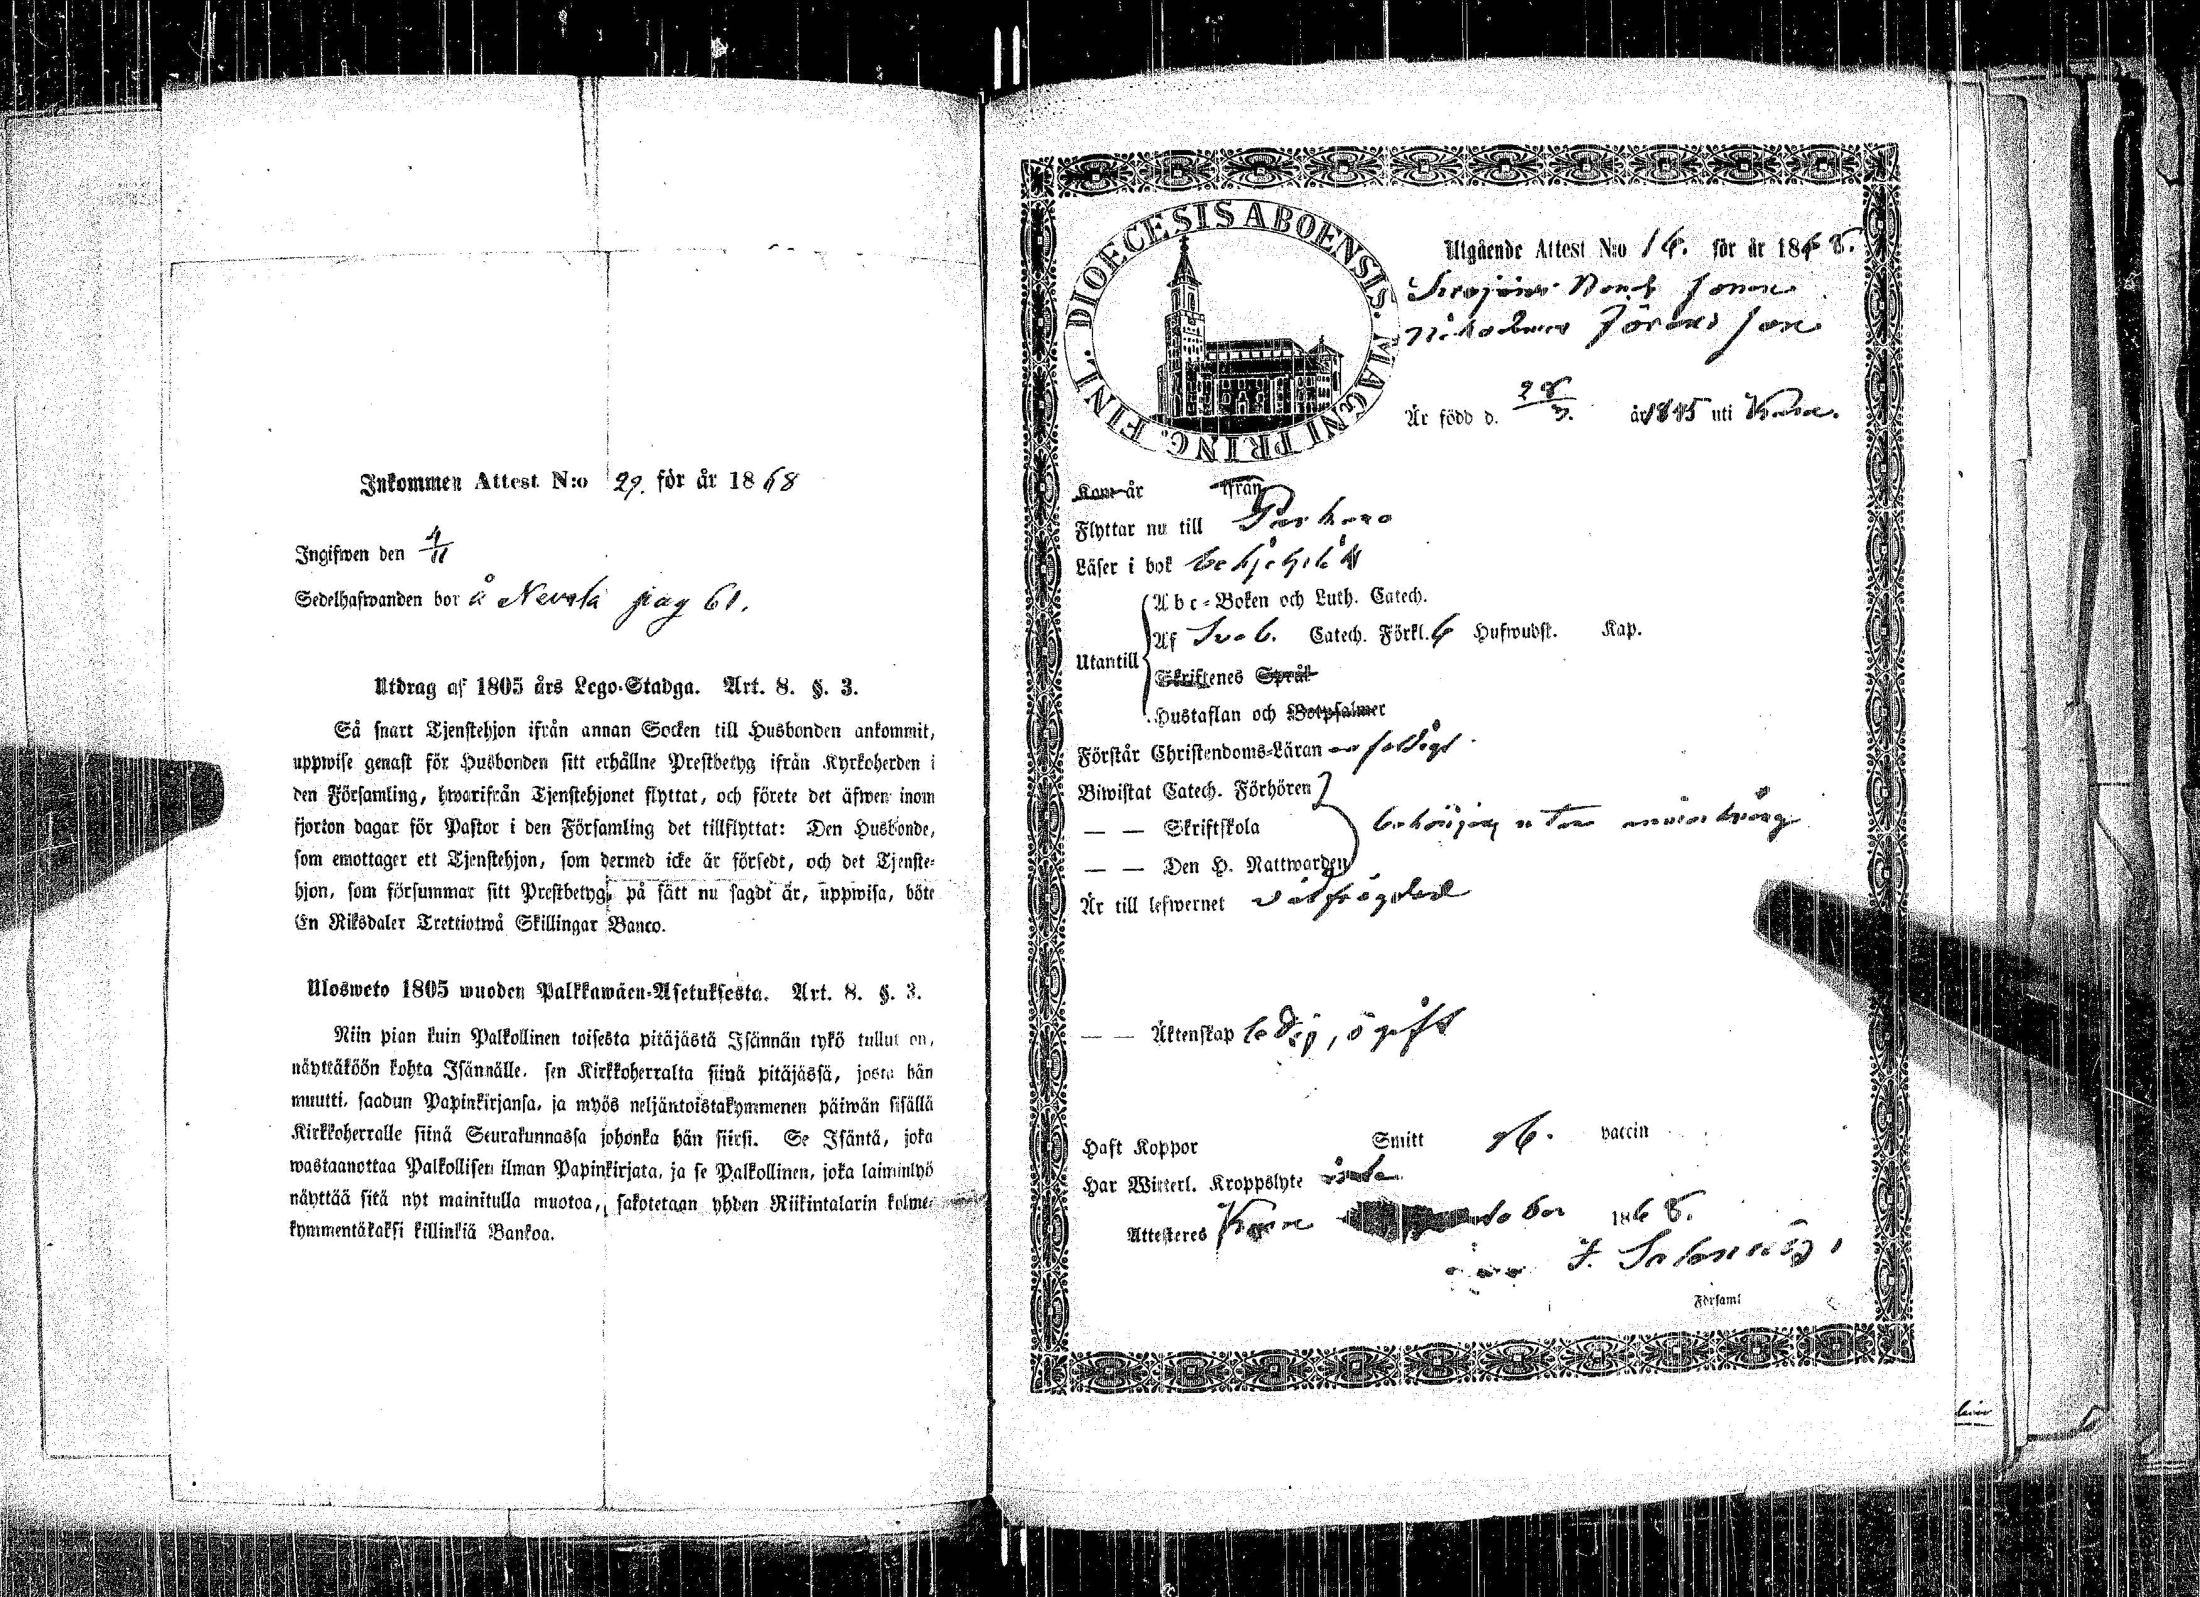 Inkommen Attest N:o 29. för år 1868
Ingifwen den 4/11
Sedelhafwanden bor å Nevala pag 61.
Utdrag af 1805 års Lego-Stadga. Art. 8. §. 3.
Så snart Tjenstehjon ifrån annan Socken till Husbonden ankommit,
uppwise genast för Husbonden sitt erhållne Prestbetyg ifrån Kyrkoherden i
den Församling, hwarifrån Tjenstehjonet flyttat, och förete det äfwen inom
fjorton dagar för Pastor i den Församling det tillflyttat: Den Husbonde,
som emottager ett Tjenstehjon, som dermed icke är försedt, och det Tjenste-
hjon, som försummar sitt Prestbetyg, på sätt nu sagdt är, uppwisa, böte
En Riksdaler Trettiotwå Skillingar Banco.
Ulosweto 1805 wuoden Palkkawäen-Asetuksesta. Art. 8. §. 3.
Niin pian kuin Palkollinen toisesta pitäjästä Isännän tykö tullut on,
näyttäköön kohta Isännälle, sen Kirkkoherralta siinä pitäjässä, josta hän
muutti, saadun Papinkirjansa, ja myös neljäntoistakymmenen päiwän sisällä
Kirkkoherralle siinä Seurakunnassa johonka hän siirsi. Se Isäntä, joka
wastaanottaa Palkollisen ilman Papinkirjata, ja se Palkollinen, joka laiminlyö
näyttää sitä nyt mainitulla muotoa, sakotetaan yhden Riikintalarin kolme-
kymmentäkaksi killinkiä Bankoa.
DIOECESIS ABOENSIS. MAGNI PRINC. FINL.
Utgående Attest N:o 16. för år 1868.
sonen
Nikodemus Jörans son
Är född d. 28/3. år 1845 uti
Kom år ifrån
Flyttar nu till Parkano
Läser i bok behjelpl.
Abc-Boken och Luth. Catech.
Af Sveb. Catech. Förkl. 6 Hufwudst. Kap.
Utantill
Skriftenes Språk
Hustaflan och Botpsalmer
Förstår Christendoms-Läran enfaldigt
Biwistat Catech. Förhören
— — Skriftskola behörigen utan anmärkning
— — Den H. Nattwarden
Är till lefwernet välfrägdad
— — Äktenskap ledig, ogift
Haft Koppor Smitt vaccin
Har Witterl. Kroppslyte
Attesteres 1868.
Församl